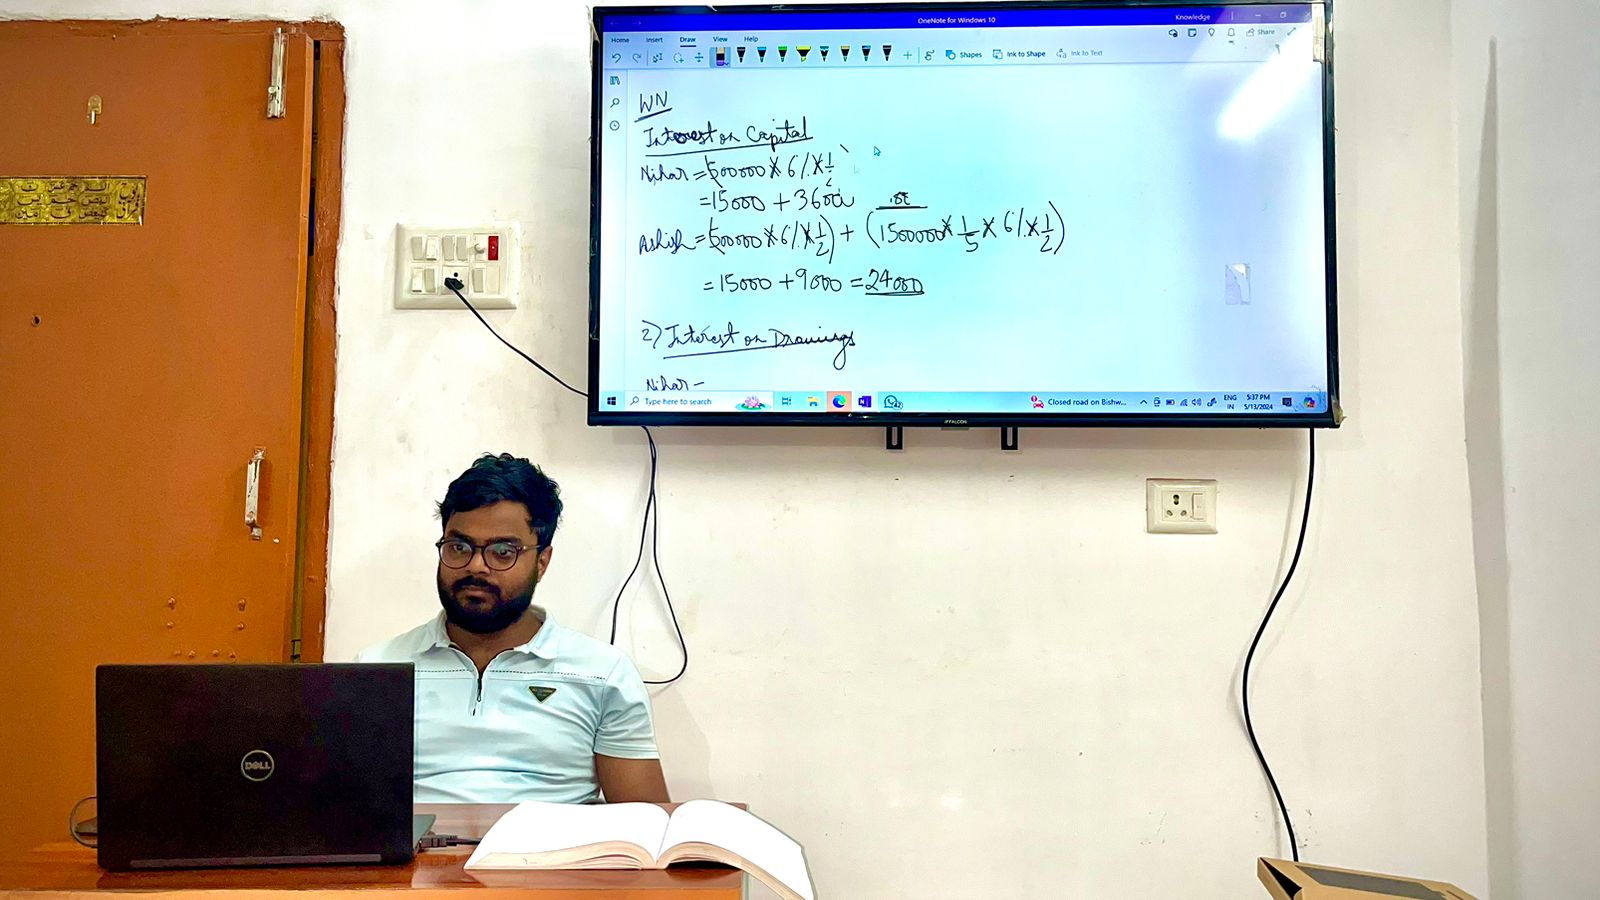 OneNote for Windows 10
Knowledge
Home Insert Draw View Help
Share
Shapes Ink to Shape Ink to Text
WN
Interest on Capital
Nihar = 500000 × 6% × 1/2
= 15000 + 36000
Ashish = (500000 × 6% × 1/2) + (1500000 × 1/5 × 6% × 1/2)
= 15000 + 9000 = 24000
2) Interest on Drawings
Nihar –
Type here to search
Closed road on Bishw...
ENG
IN
5:37 PM
5/13/2024
iFFALCON
DELL